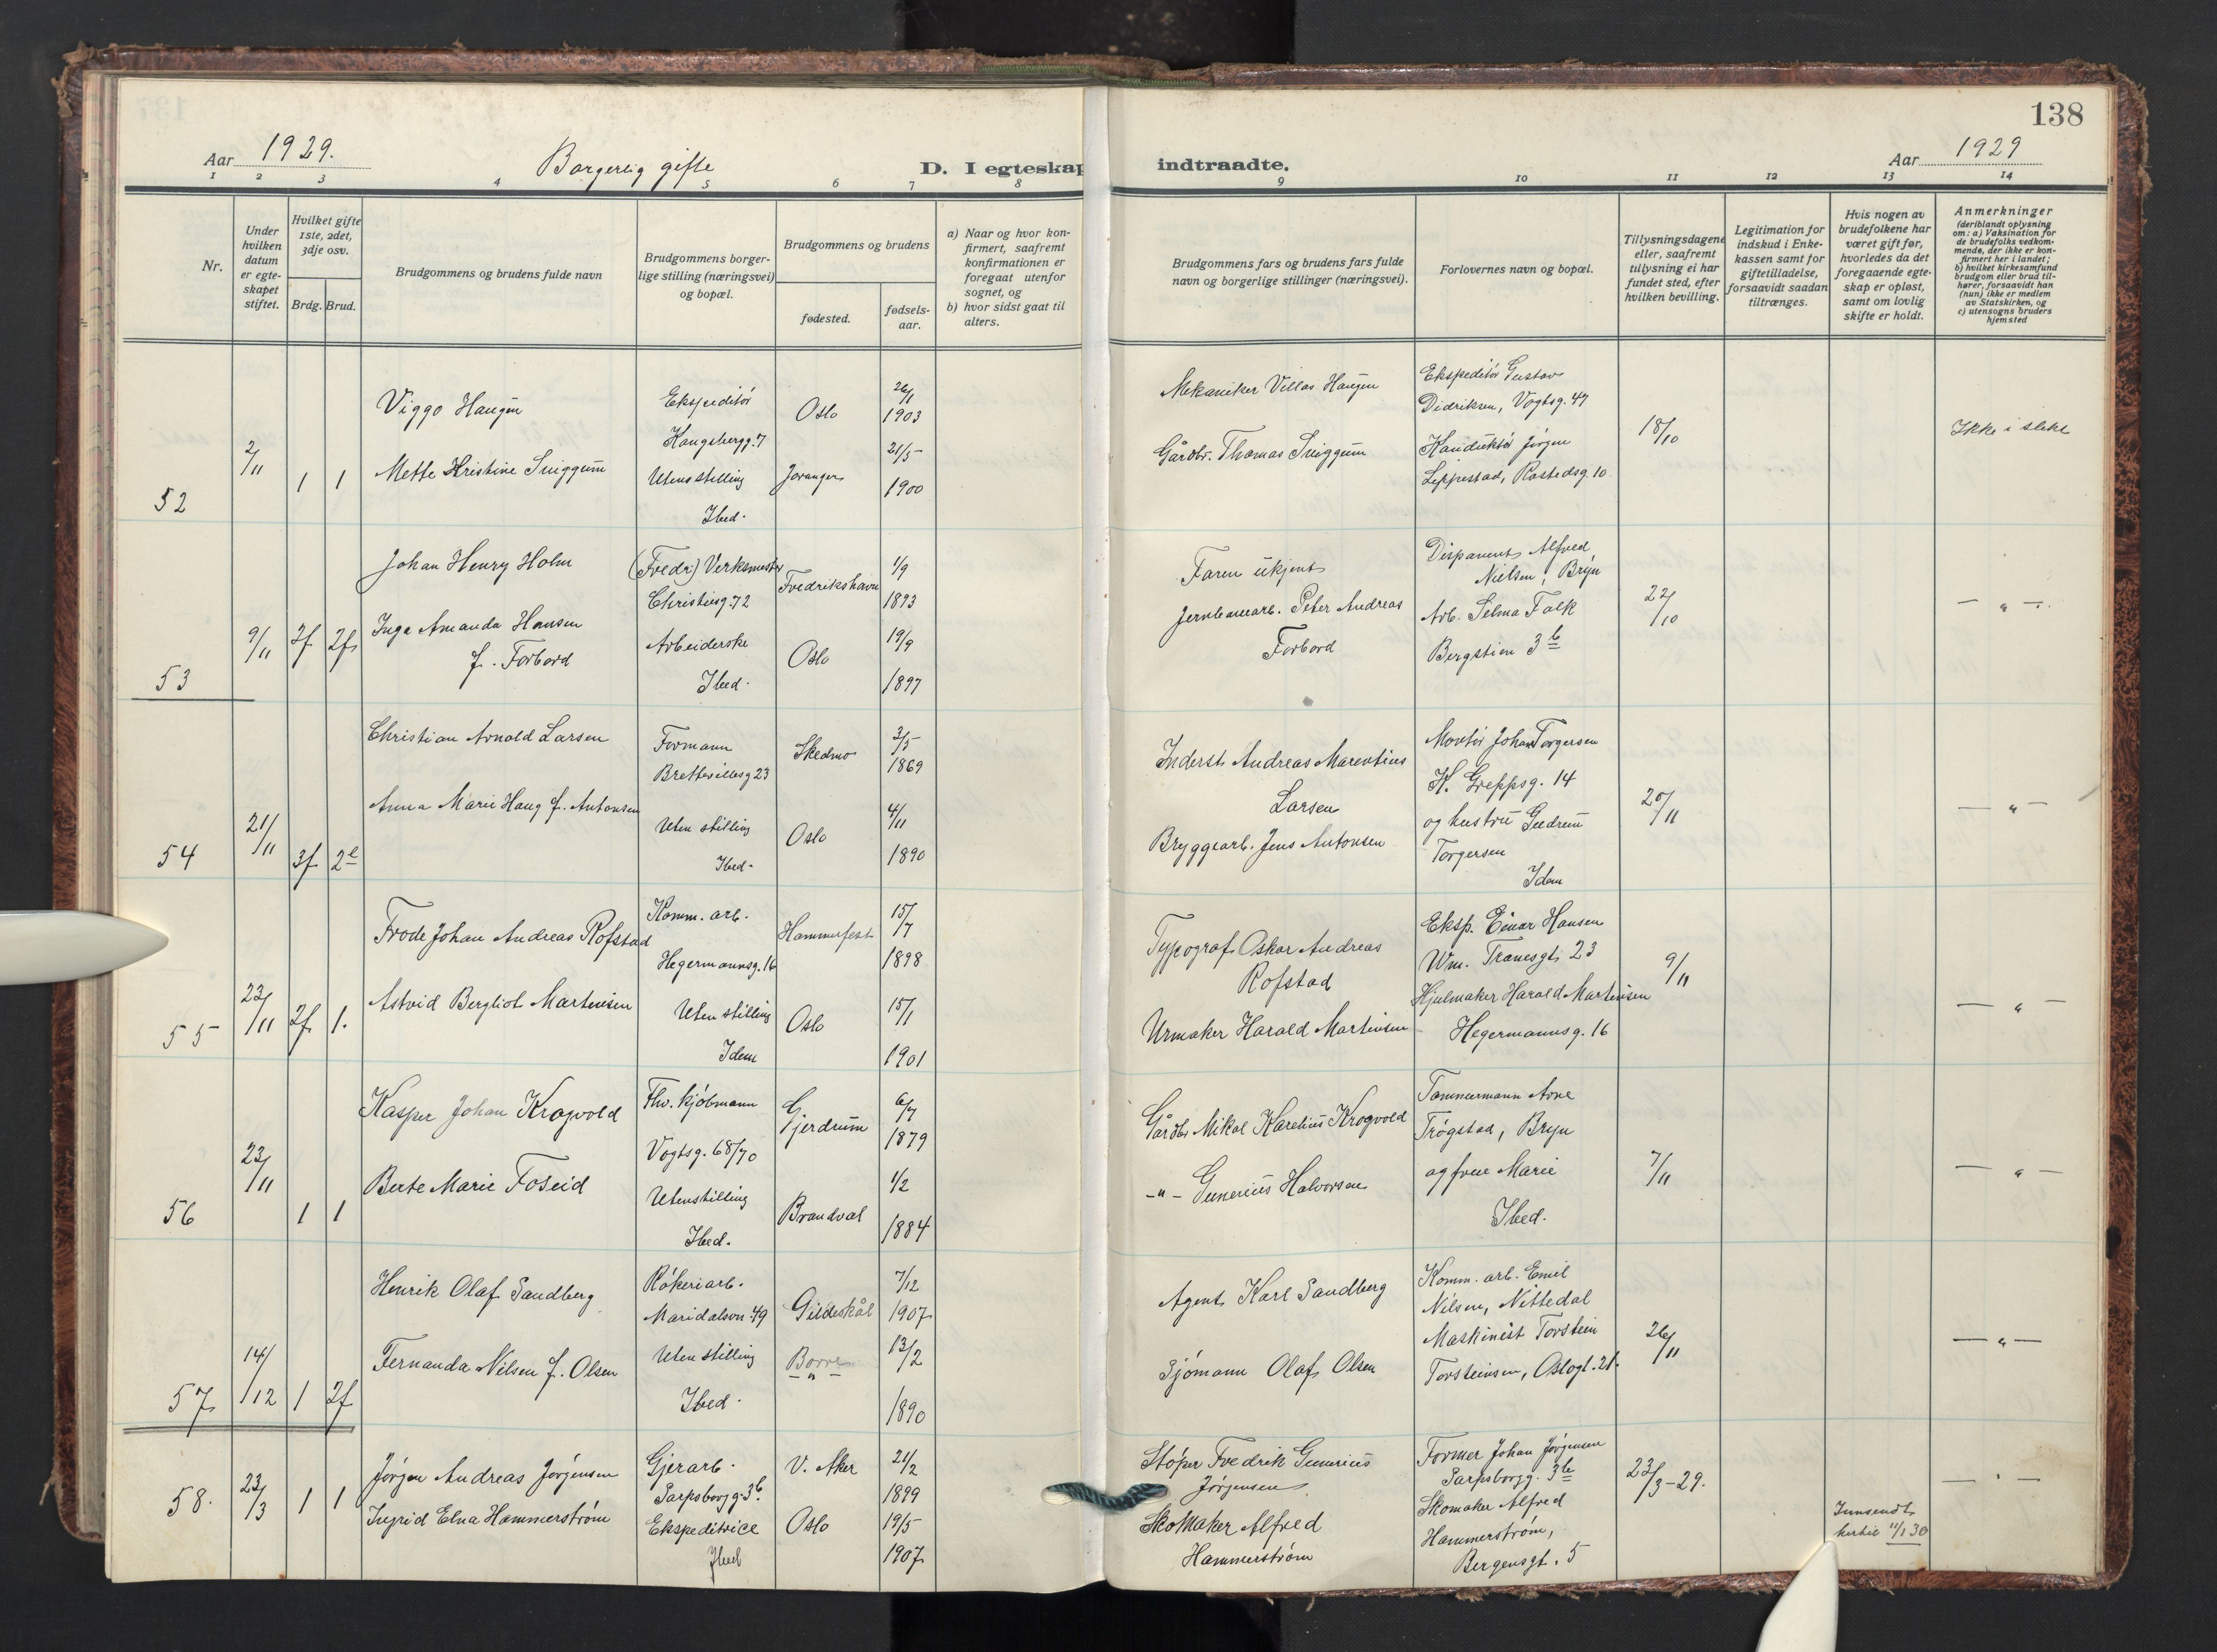 138
Aar 1929.
Borgerlig gifte
D. I egteskap
indtraadte.
Aar 1929
1 2 3 4 5 6 7 8 9 10 11 12 13 14
Nr.
Under
hvilken
datum
er egte-
skapet
stiftet.
Hvilket gifte
1ste, 2det,
3dje osv.
Brdg. Brud.
Brudgommens og brudens fulde navn
Brudgommens borger-
lige stilling (næringsvei)
og bopæl.
Brudgommens og brudens
fødested.
fødsels-
aar.
a) Naar og hvor kon-
firmert, saafremt
konfirmationen er
foregaat utenfor
sognet, og
b) hvor sidst gaat til
alters.
Brudgommens fars og brudens fars fulde
navn og borgerlige stillinger (næringsvei).
Forlovernes navn og bopæl.
Tillysningsdagene
eller, saafremt
tillysning ei har
fundet sted, efter
hvilken bevilling.
Legitimation for
indskud i Enke-
kassen samt for
giftetilladelse,
forsaavidt saadan
tiltrænges.
Hvis nogen av
brudefolkene har
været gift før,
hvorledes da det
foregaaende egte-
skap er opløst,
samt om lovlig
skifte er holdt.
Anmerkninger
(deriblandt oplysning
om: a) Vaksination for
de brudefolks vedkom-
mende, der ikke er kon-
firmert her i landet;
b) hvilket kirkesamfund
brudgom eller brud til-
hører, forsaavidt han
(hun) ikke er medlem
av Statskirken, og
c) utensogns bruders
hjemsted
52
2/11
1 1
Viggo Haugen
Mette Kristine Sniggum
Ekspeditør
Kongsbergg. 7
Uten stilling
Ibed.
Oslo
Joranger
26/1
1903
21/5
1900
Mekaniker Villas Haugen
Gårdbr. Thomas Sniggum
Ekspeditør Gustav
Didriksen, Vogtsg. 47
Konduktør Jørgen
Leppestad, Rostedsg. 10
18/10
Ikke i slekt
53
9/11
2f 2f
Johan Henry Holm
Inga Amanda Hansen
f. Forbord
(Fredr.) Verksmester
Christiesg. 72
Arbeiderske
Ibed.
Fredrikshavn
Oslo
1/9
1893
19/9
1897
Faren ukjent
Jernbanearb. Peter Andreas
Forbord
Disponent Alfred
Nielsen, Bryn
Arb. Selma Falk
Bergstien 3b
22/10
— " —
54
21/11
3f 2e
Christian Arnold Larsen
Anna Marie Haug f. Antonsen
Formann
Brettevillesg 23
Uten stilling
Ibed.
Skedmo
Oslo
3/5
1869
4/11
1890
Inderst Andreas Marentius
Larsen
Bryggearb. Jens Antonsen
Montør Johan Torgersen
K. Greppsg. 14
og hustru Gudrun
Torgersen
Idem
20/11
— " —
55
23/11
2f 1.
Frode Johan Andreas Rofstad
Astrid Bergliot Martinsen
Komm. arb.
Hegermannsg. 16
Uten stilling
Idem
Hammerfest
Oslo
15/7
1898
15/1
1901
Typograf Oskar Andreas
Rofstad
Urmaker Harald Martinsen
Eksp. Einar Hansen
Wm. Tranesgt 23
Hjulmaker Harald Martinsen
Hegermannsg. 16
9/11
— " —
56
23/11
1 1
Kasper Johan Krogvold
Berte Marie Foseid
Fhv. kjøbmann
Vogtsg. 68/70
Uten stilling
Ibed.
Gjerdrum
Brandval
6/7
1879
1/2
1884
Gårdbr Mikal Karelius Krogvold
- " - Gunerius Halvorsen
Tømmermann Arne
Trøgstad, Bryn
og frue Marie
Ibed.
7/11
— " —
57
14/12
1 2f
Henrik Olaf Sandberg
Fernanda Nilsen f. Olsen
Røkeriarb.
Maridalsvn 49
Uten stilling
Ibed.
Gildeskål
Borre
— " —
7/12
1907
13/2
1890
Agent Karl Sandberg
Sjømann Olaf Olsen
Komm. arb. Emil
Nilsen, Nittedal
Maskinist Torstein
Torsteinsen, Oslogt. 21.
26/11
— " —
58.
23/3
1 1
Jørgen Andreas Jørgensen
Ingrid Elna Hammerstrøm
Gjerarb.
Sarpsborgg. 3b.
Ekspeditrice
Ibed
V. Aker
Oslo
21/2
1899
19/5
1907
Støper Fredrik Gunerius
Jørgensen
Skomaker Alfred
Hammerstrøm
Former Johan Jørgensen
Sarpsborgg. 3b
Skomaker Alfred
Hammerstrøm,
Bergensgt. 5
23/3-29.
Innsendt
11/1 30
— " —